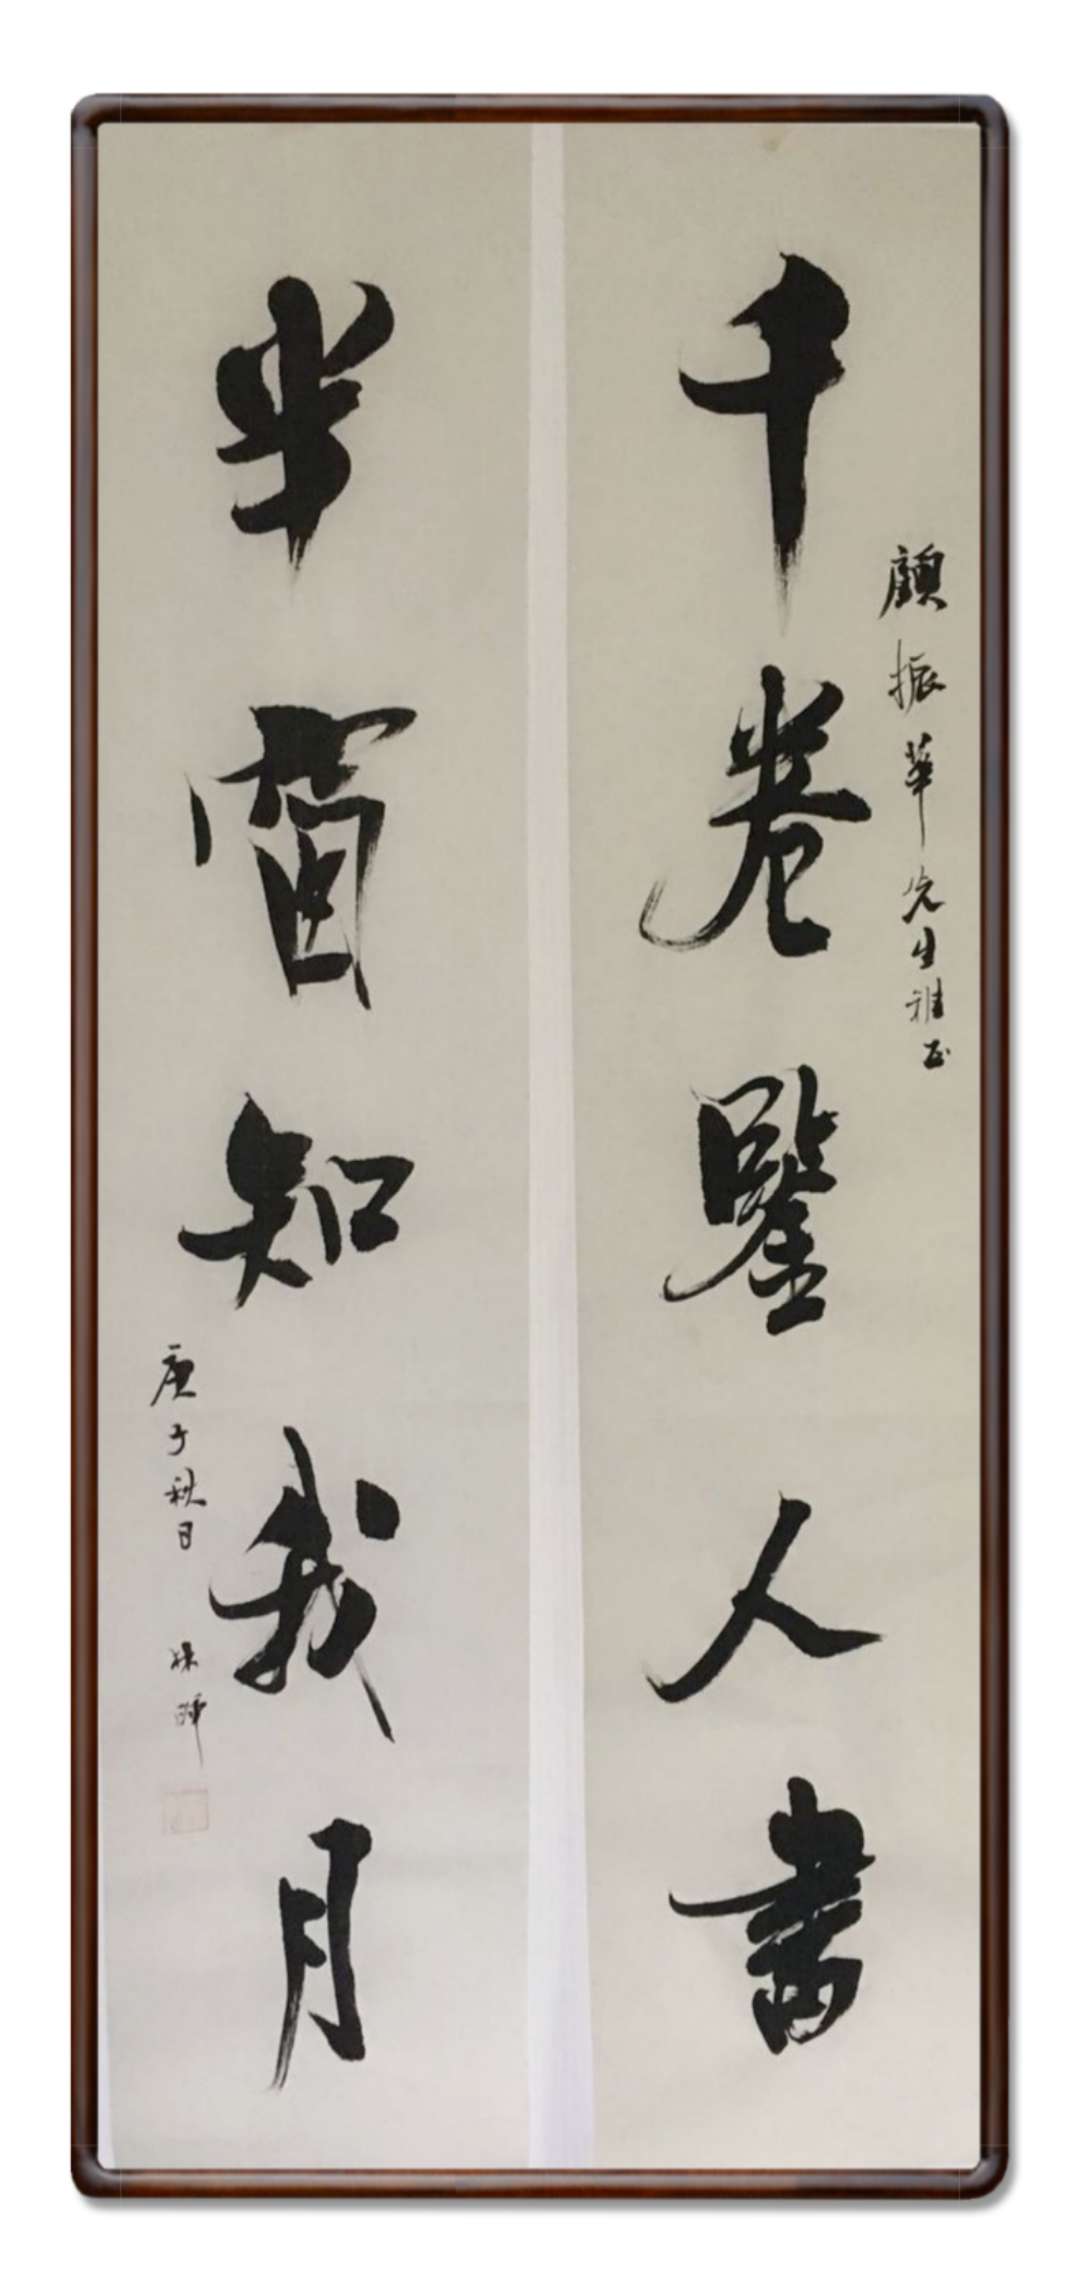 千卷鑒人書
顧振華先生雅正
半窗知我月
庚子秋日